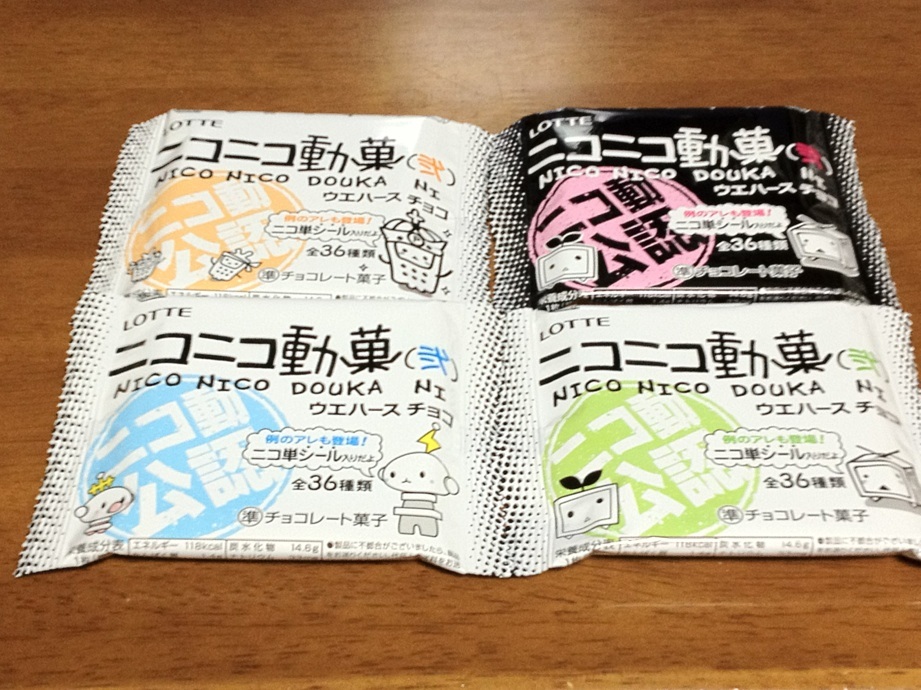 LOTTE
ニコニコ動か菓(弐)
NICO NICO DOUKA NI
ウエハースチョコ
ニコニコ動
公認
例のアレも登場!
ニコ単シール入りだよ
全36種類
準チョコレート菓子
エネルギー 118kcal 炭水化物
LOTTE
ニコニコ動か菓(弐)
NICO NICO DOUKA NI
ウエハースチョコ
ニコニコ動
公認
例のアレも登場!
ニコ単シール入りだよ
全36種類
準チョコレート菓子
栄養成分表 エネルギー 118kcal 炭水化物
LOTTE
ニコニコ動か菓(弐)
NICO NICO DOUKA NI
ウエハースチョコ
ニコニコ動
公認
例のアレも登場!
ニコ単シール入りだよ
全36種類
準チョコレート菓子
栄養成分表 エネルギー 118kcal 炭水化物 14.6g ●製品に不都合がございましたら、
LOTTE
ニコニコ動か菓(弐)
NICO NICO DOUKA NI
ウエハースチョコ
ニコニコ動
公認
例のアレも登場!
ニコ単シール入りだよ
全36種類
準チョコレート菓子
栄養成分表 エネルギー 118kcal 炭水化物 14.6g ●製品に不都合がござい